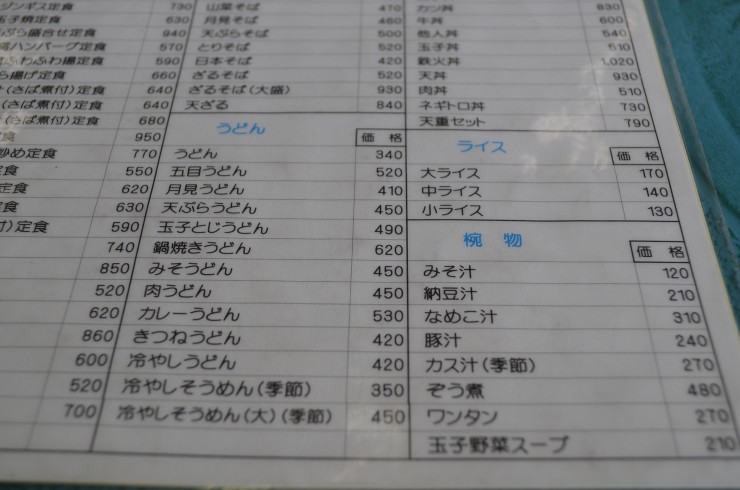 ジンギス定食 730
玉子焼定食 630
ぷら盛合せ定食 940
ハンバーグ定食 570
ふわふわ揚定食 590
ら揚げ定食 660
(さば煮付)定食 640
(さば煮付)定食 640
(さば煮付)定食 680
食 950
炒め定食 770
定食 550
定食 620
食 630
付)定食 590
740
850
520
620
860
600
520
700
山菜そば 470
月見そば 460
天ぷらそば 500
とりそば 520
日本そば 420
ざるそば 520
ざるそば(大盛) 930
天ざる 840
うどん
価格
うどん 340
五目うどん 520
月見うどん 410
天ぷらうどん 450
玉子とじうどん 490
鍋焼きうどん 620
みそうどん 450
肉うどん 450
カレーうどん 530
きつねうどん 420
冷やしうどん 420
冷やしそうめん(季節) 350
冷やしそうめん(大)(季節) 450
カツ丼 830
牛丼 600
他人丼 540
玉子丼 510
鉄火丼 1,020
天丼 930
肉丼 510
ネギトロ丼 730
天重セット 790
ライス
価格
大ライス 170
中ライス 140
小ライス 130
椀物
価格
みそ汁 120
納豆汁 210
なめこ汁 310
豚汁 240
カス汁(季節) 270
ぞう煮 480
ワンタン 270
玉子野菜スープ 210